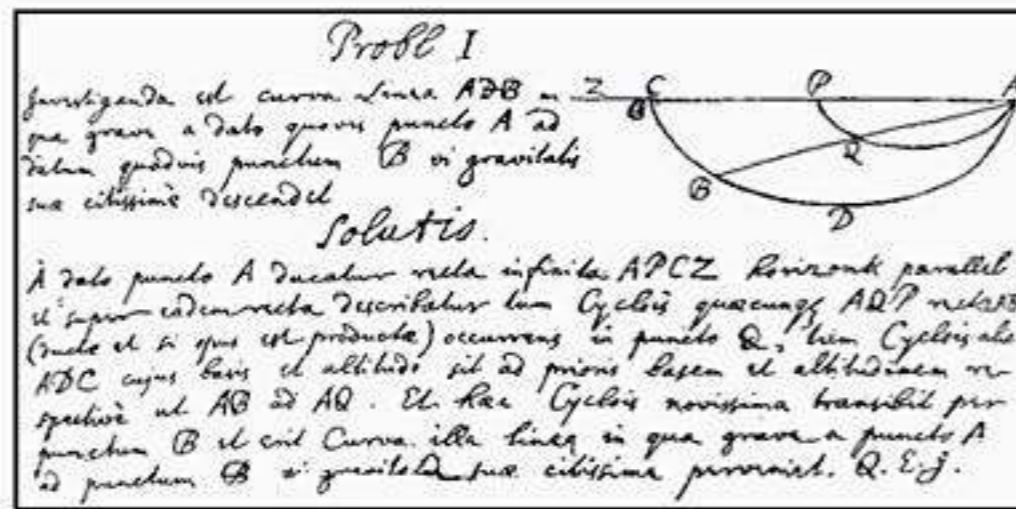 Probl I
Investiganda est curva Linea ADB in
qua grave a dato quovis puncto A ad
datum quodvis punctum B vi gravitatis
suæ citissimè descendet
Z C P A
B
Q
B
D
Solutio.
A dato puncto A ducatur recta infinita APCZ horizonti parallela
et super eadem recta describatur tum Cyclois quæcunq AQP rectæ AB
(ductæ et si opus est productæ) occurrens in puncto Q, tum Cyclois alia
ADC cujus basis et altitudo sit ad prioris basem et altitudinem re-
spectivè ut AB ad AQ. Et hæc Cyclois novissima transibit per
punctum B et erit Curva illa linea in qua grave a puncto A
ad punctum B vi gravitatis suæ citissime perveniet. Q.E.J.